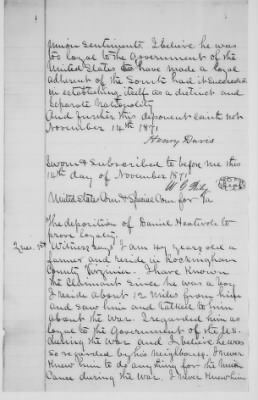 Union Sentiments I believe he was
too loyal to the Government of the
United States to have made a loyal
adherent of the South had it succeeded
in establishing itself as a distinct and
separate Nationality
And further this deponent saith not
November 14th 1871
Henry Davis
Sworn & Subscribed to before me this
14th day of November 1871
W. G.
United States Com & Special Com for Va
The deposition of Daniel Heatwole to
prove loyalty
Ques. 1st Witness says I am 47 years old a
farmer and reside in Rockingham
County Virginia. I have Known
the Claimant since he was a boy
I reside about 12 miles from him
and saw him and talked to him
about the War. I regarded him as
loyal to the Government of the U.S.
during the War and I believe he was
so regarded by his neighbours. I never
Knew him to do anything for the Union
Cause during the War. I never Knew him